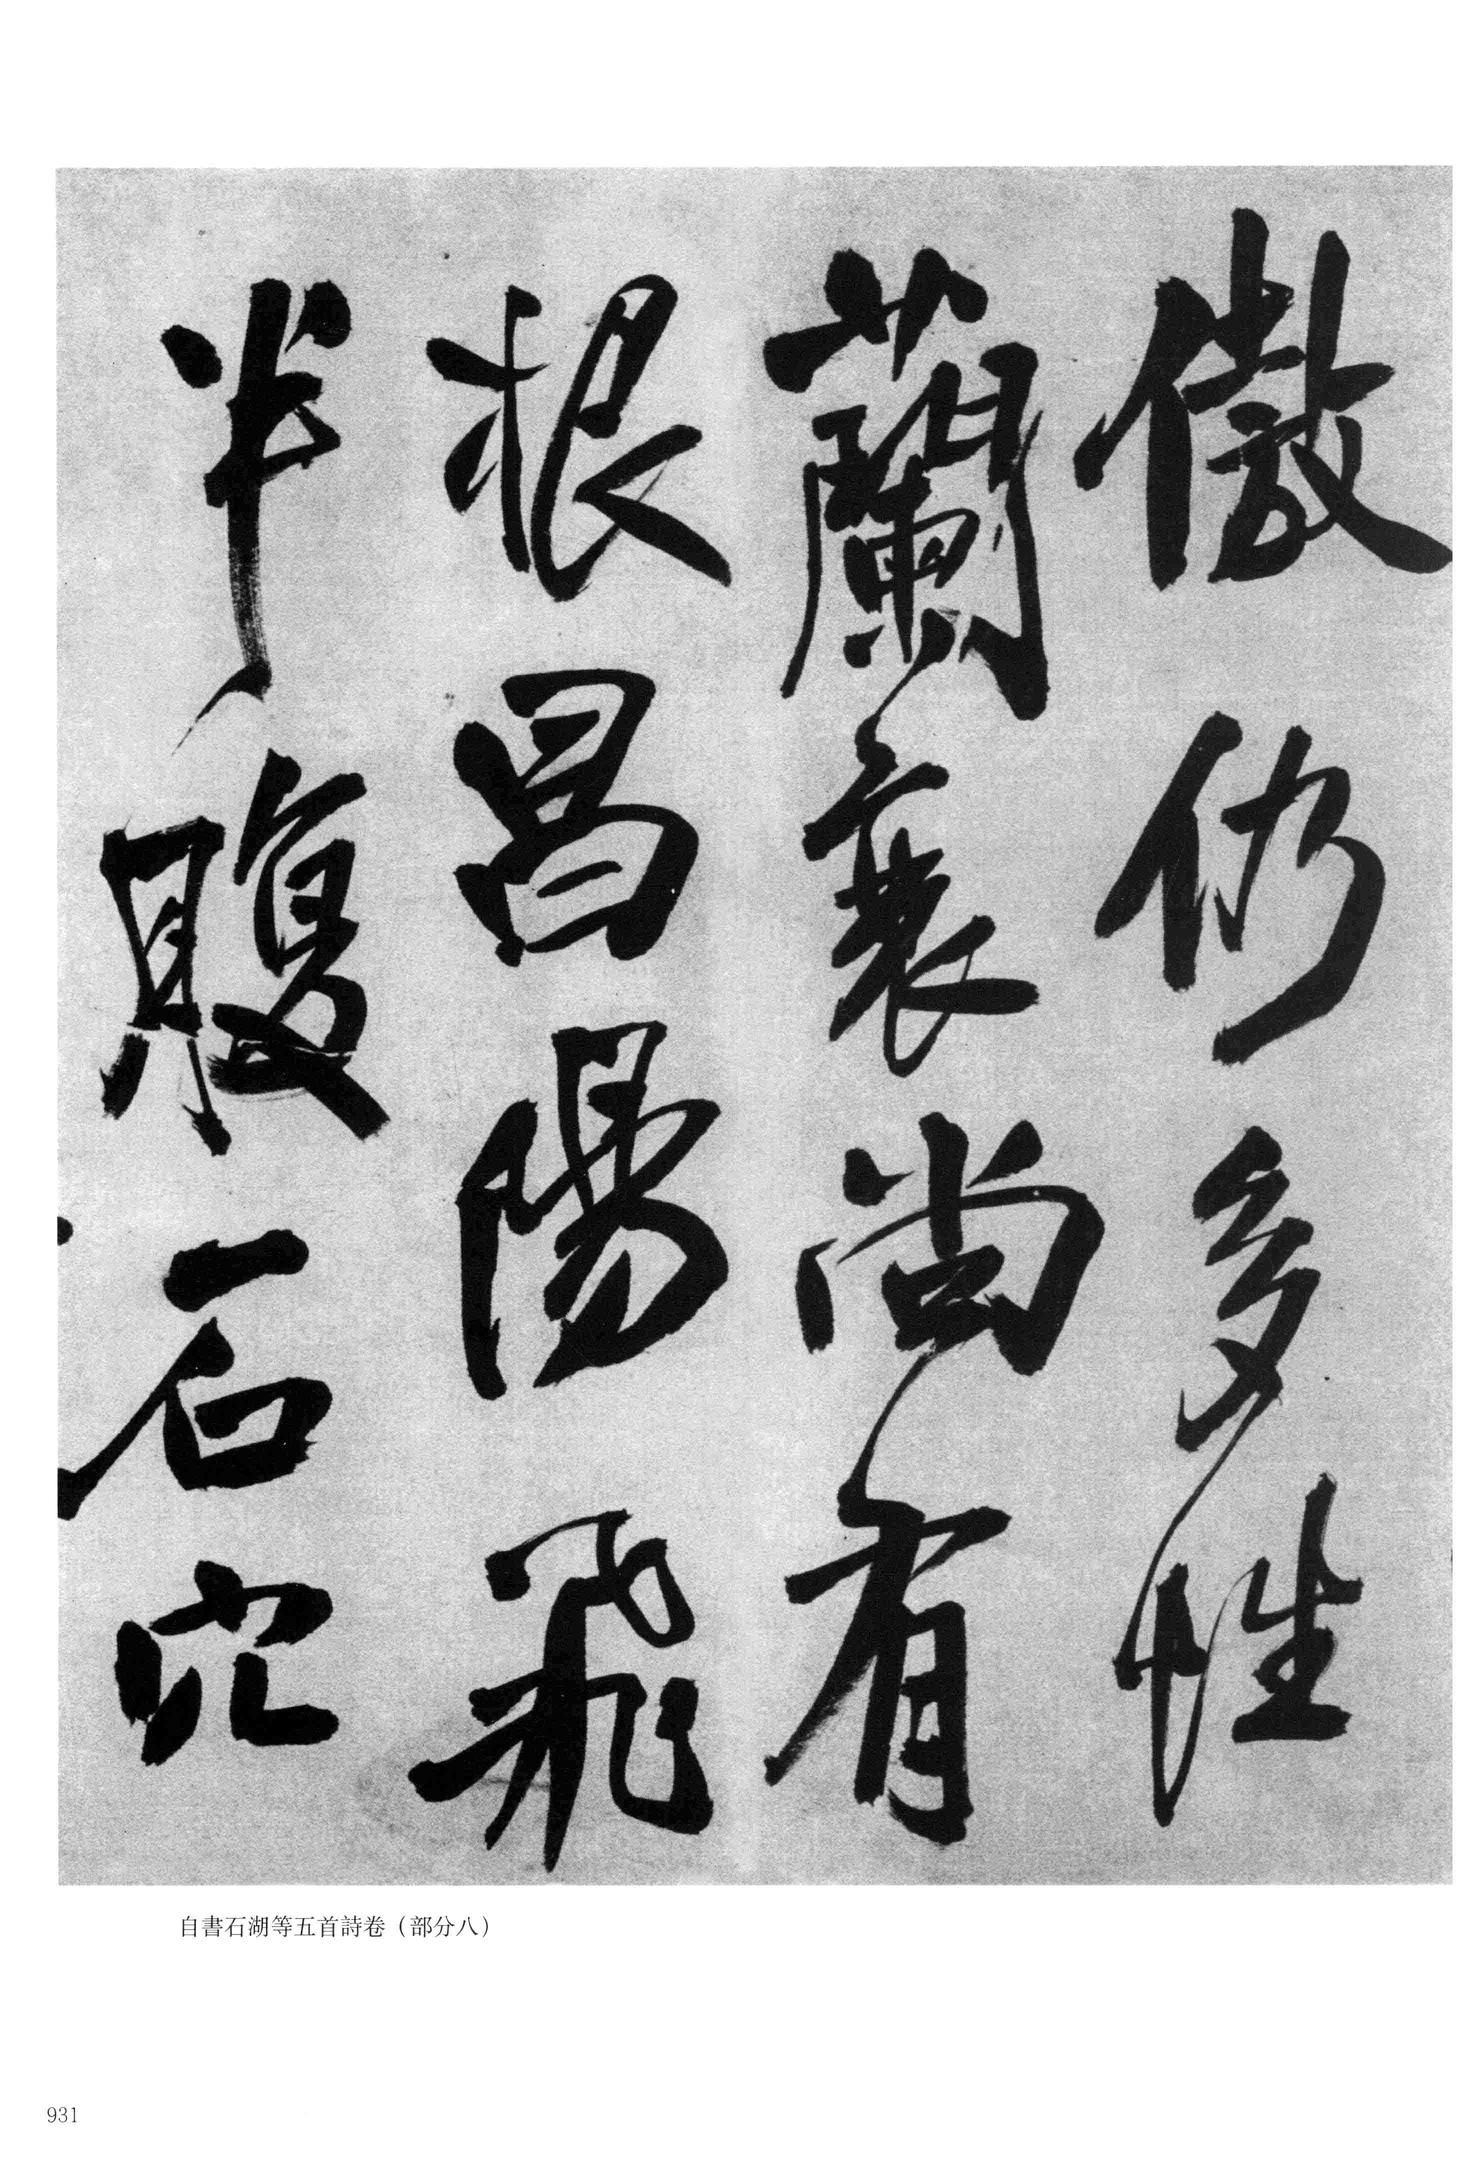 傲仍多性
蘭衰尚有
根昌陽飛
半腹石穴
自書石湖等五首詩卷（部分八）
931